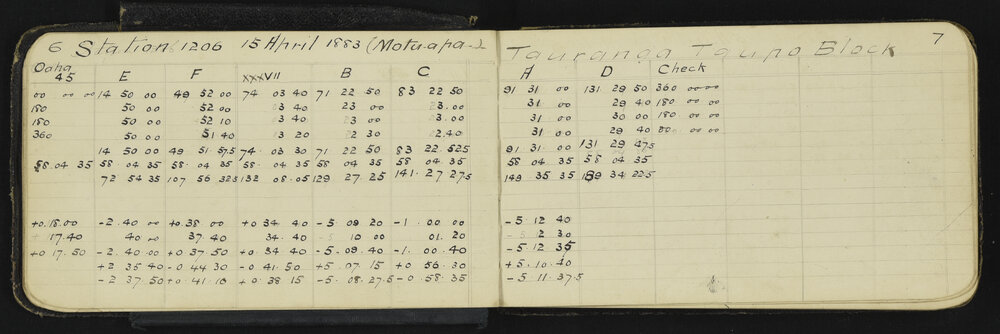 6 Station 1206 15 April 1883 (Motuapa) Tauranga Taupo Block 7
Oaha
45 E F XXXVII B C A D Check
00 00 00 14 50 00 49 52 00 74 03 40 71 22 50 83 22 50 91 31 00 131 29 50 360 00 00
180 50 00 52 00 03 40 23 00 23.00 31 00 29 40 180 00 00
180 50 00 52 10 03 40 23 00 23.00 31 00 30 00 180 00 00
360 50 00 51 40 03 20 22 30 22.40 31 00 29 40 00 00
14 50 00 49 51 57.5 74 03 30 71 22 50 83 22 52.5 91 31 00 131 29 47.5
58.04 35 58 04 35 58 04 35 58 04 35 58 04 35 58 04 35 58 04 35 58 04 35
72 54 35 107 56 32.5 132 08.05 129 27 25 141 27 27.5 149 35 35 189 34 22.5
+0.18.00 -2.40 00 +0.38 00 +0 34 40 -5 09 20 -1 00 00 -5 12 40
17.40 40 00 37 40 34.40 10 00 01.20 2 30
+0 17.50 -2.40 00 +0 37 50 +0 34 40 -5.09.40 -1.00.40 -5 12 35
+2 35 40 -0 44 30 -0 41.50 +5.07.15 +0 56.30 +5.10.40
-2 37.50 +0.41.10 +0 38 15 -5.08.27.5 -0 58.35 -5 11 37.5